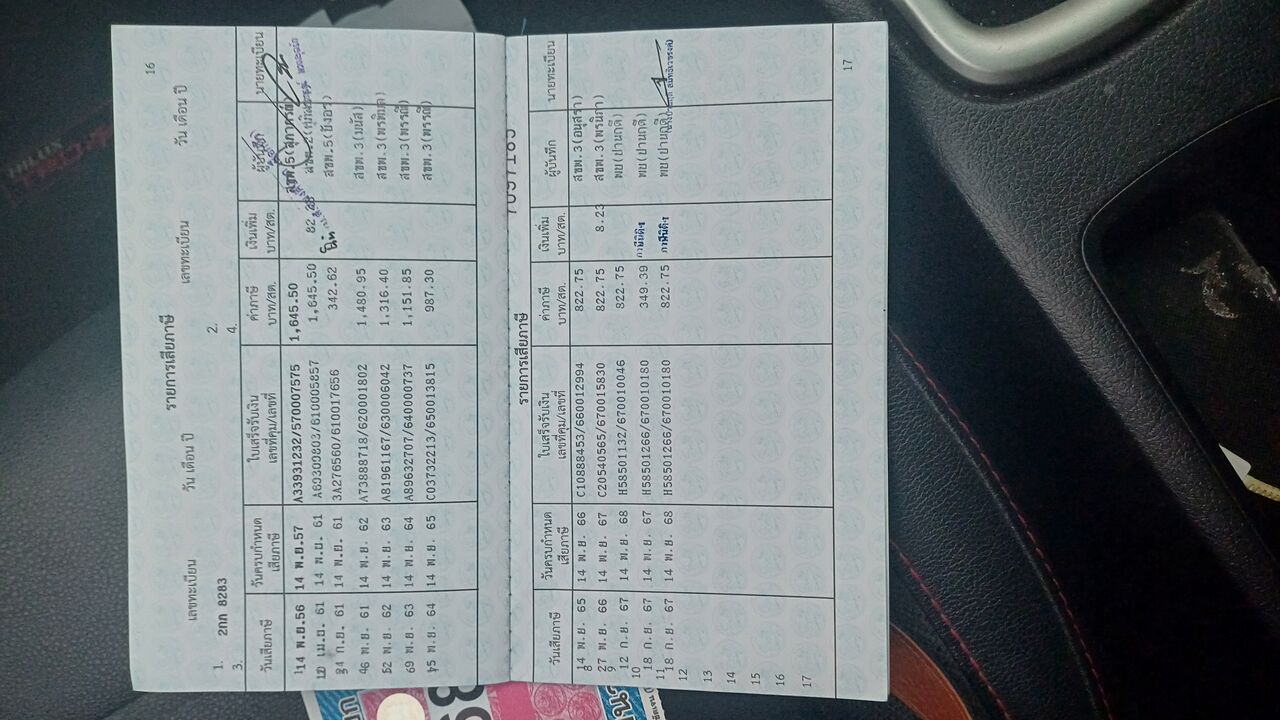 16
เลขทะเบียน วัน เดือน ปี เลขทะเบียน วัน เดือน ปี
1. 2กก 8283 2.
3. 4.
รายการเสียภาษี
วันเสียภาษี วันครบกำหนดเสียภาษี ใบเสร็จรับเงิน เลขที่คุม/เลขที่ ค่าภาษี บาท/สต. เงินเพิ่ม บาท/สต. ผู้บันทึก นายทะเบียน
14 พ.ย.56 14 พ.ย.57 A33931232/570007575 1,645.50
เม.ย. 61 14 พ.ย. 61 A60309803/610005857 1,645.50
ก.ย. 61 14 พ.ย. 61 3A276560/610017656 342.62 สขพ.5(บังอร)
พ.ย. 61 14 พ.ย. 62 A73888718/620001802 1,480.95 สขพ.3(มนัส)
พ.ย. 62 14 พ.ย. 63 A81961167/630006042 1,316.40 สขพ.3(พรพิมล)
พ.ย. 63 14 พ.ย. 64 A89632707/640000737 1,151.85 สขพ.3(พรรณี)
พ.ย. 64 14 พ.ย. 65 C03732213/650013815 987.30 สขพ.3(พรรณี)
รายการเสียภาษี
วันเสียภาษี วันครบกำหนดเสียภาษี ใบเสร็จรับเงิน เลขที่คุม/เลขที่ ค่าภาษี บาท/สต. เงินเพิ่ม บาท/สต. ผู้บันทึก นายทะเบียน
14 พ.ย. 65 14 พ.ย. 66 C10888453/660012994 822.75 สขพ.3(อนุสรา)
8
27 พ.ย. 66 14 พ.ย. 67 C20540565/670015830 822.75 8.23 สขพ.3(พรนิภา)
9
12 ก.ย. 67 14 พ.ย. 68 H58501132/670010046 822.75 พย(ปานฤดี)
10
18 ก.ย. 67 14 พ.ย. 67 H58501266/670010180 349.39 พย(ปานฤดี)
11
18 ก.ย. 67 14 พ.ย. 68 H58501266/670010180 822.75 พย(ปานฤดี)
12
13
14
15
16
17
17
HILUX